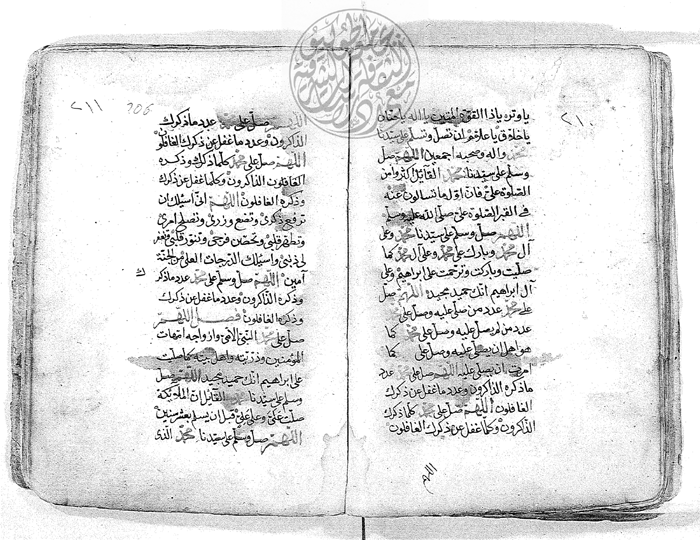 ٢١٠
يا وتر يا ذا القوة المتين يا الله يا حنان
يا خلاق يا علام ان تصلى وتسلم على سيدنا
محمد واله وصحبه اجمعين اللهم صل
وسلم على سيدنا محمد القائل اكثروا من
الصلوة علي فان اول ما تسالون عنه
فى القبر الصلوة علي صلى الله عليه وسلم
اللهم صل وسلم على سيدنا محمد وعلى
آل محمد وبارك على محمد وعلى آل محمد كما
صليت وباركت وترحمت على ابراهيم وعلى
آل ابراهيم انك حميد مجيد اللهم صل
على محمد عدد من صلى عليه وصل على محمد
عدد من لم يصل عليه وصل على محمد كما
هو اهل ان يصلى عليه وصل على محمد كما
امرت ان يصلى عليه اللهم صل على محمد عدد
ما ذكره الذاكرون وعدد ما غفل عن ذكرك
الغافلون اللهم صل على محمد كلما ذكرك
الذاكرون وكلما غفل عن ذكرك الغافلون
اللهم
٢١١ 206
اللهم صل على محمد عدد ما ذكرك
الذاكرون وعدد ما غفل عن ذكرك الغافلون
اللهم صل على محمد كلما ذكرك وذكره
الذاكرون وكلما غفل عن ذكرك
وذكره الغافلون اللهم انى اسئلك ان
ترفع ذكرى وتضع وزرى وتصلح امرى
وتطهر قلبى وتحصن فرجى وتنور قلبى وتغفر
لى ذنبى واسئلك الدرجات العلى من الجنة
آمين اللهم صل وسلم على محمد عدد ما ذكرك
وذكره الذاكرون وعدد ما غفل عن ذكرك
وذكره الغافلون فصل اللهم
صل على محمد النبى الامى وازواجه امهات
المؤمنين وذريته واهل بيته كما صليت
على ابراهيم انك حميد مجيد اللهم صل
وسلم على سيدنا محمد القائل ان الملائكة
صلت علي وعلى على قبل ان يسلم بشر سنين
اللهم صل وسلم على سيدنا محمد الذى